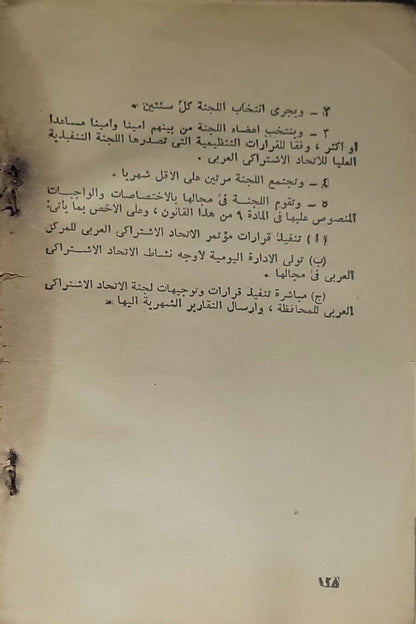 ٢ — ويجرى انتخاب اللجنة كل سنتين .
٣ — وينتخب أعضاء اللجنة من بينهم أمينا وأمينا مساعدا
أو أكثر ، وفقا للقرارات التنظيمية التى تصدرها اللجنة التنفيذية
العليا للاتحاد الاشتراكى العربى .
٤ — وتجتمع اللجنة مرتين على الاقل شهريا .
٥ — وتقوم اللجنة فى مجالها بالاختصاصات والواجبات
المنصوص عليها فى المادة ٩ من هذا القانون ، وعلى الاخص بما يأتى :
(أ) تنفيذ قرارات مؤتمر الاتحاد الاشتراكى العربى للمركز
(ب) تولى الادارة اليومية لأوجه نشاط الاتحاد الاشتراكى
العربى فى مجالها .
(ج) مباشرة تنفيذ قرارات وتوجيهات لجنة الاتحاد الاشتراكى
العربى للمحافظة ، وارسال التقارير الشهرية اليها .
١٢٥